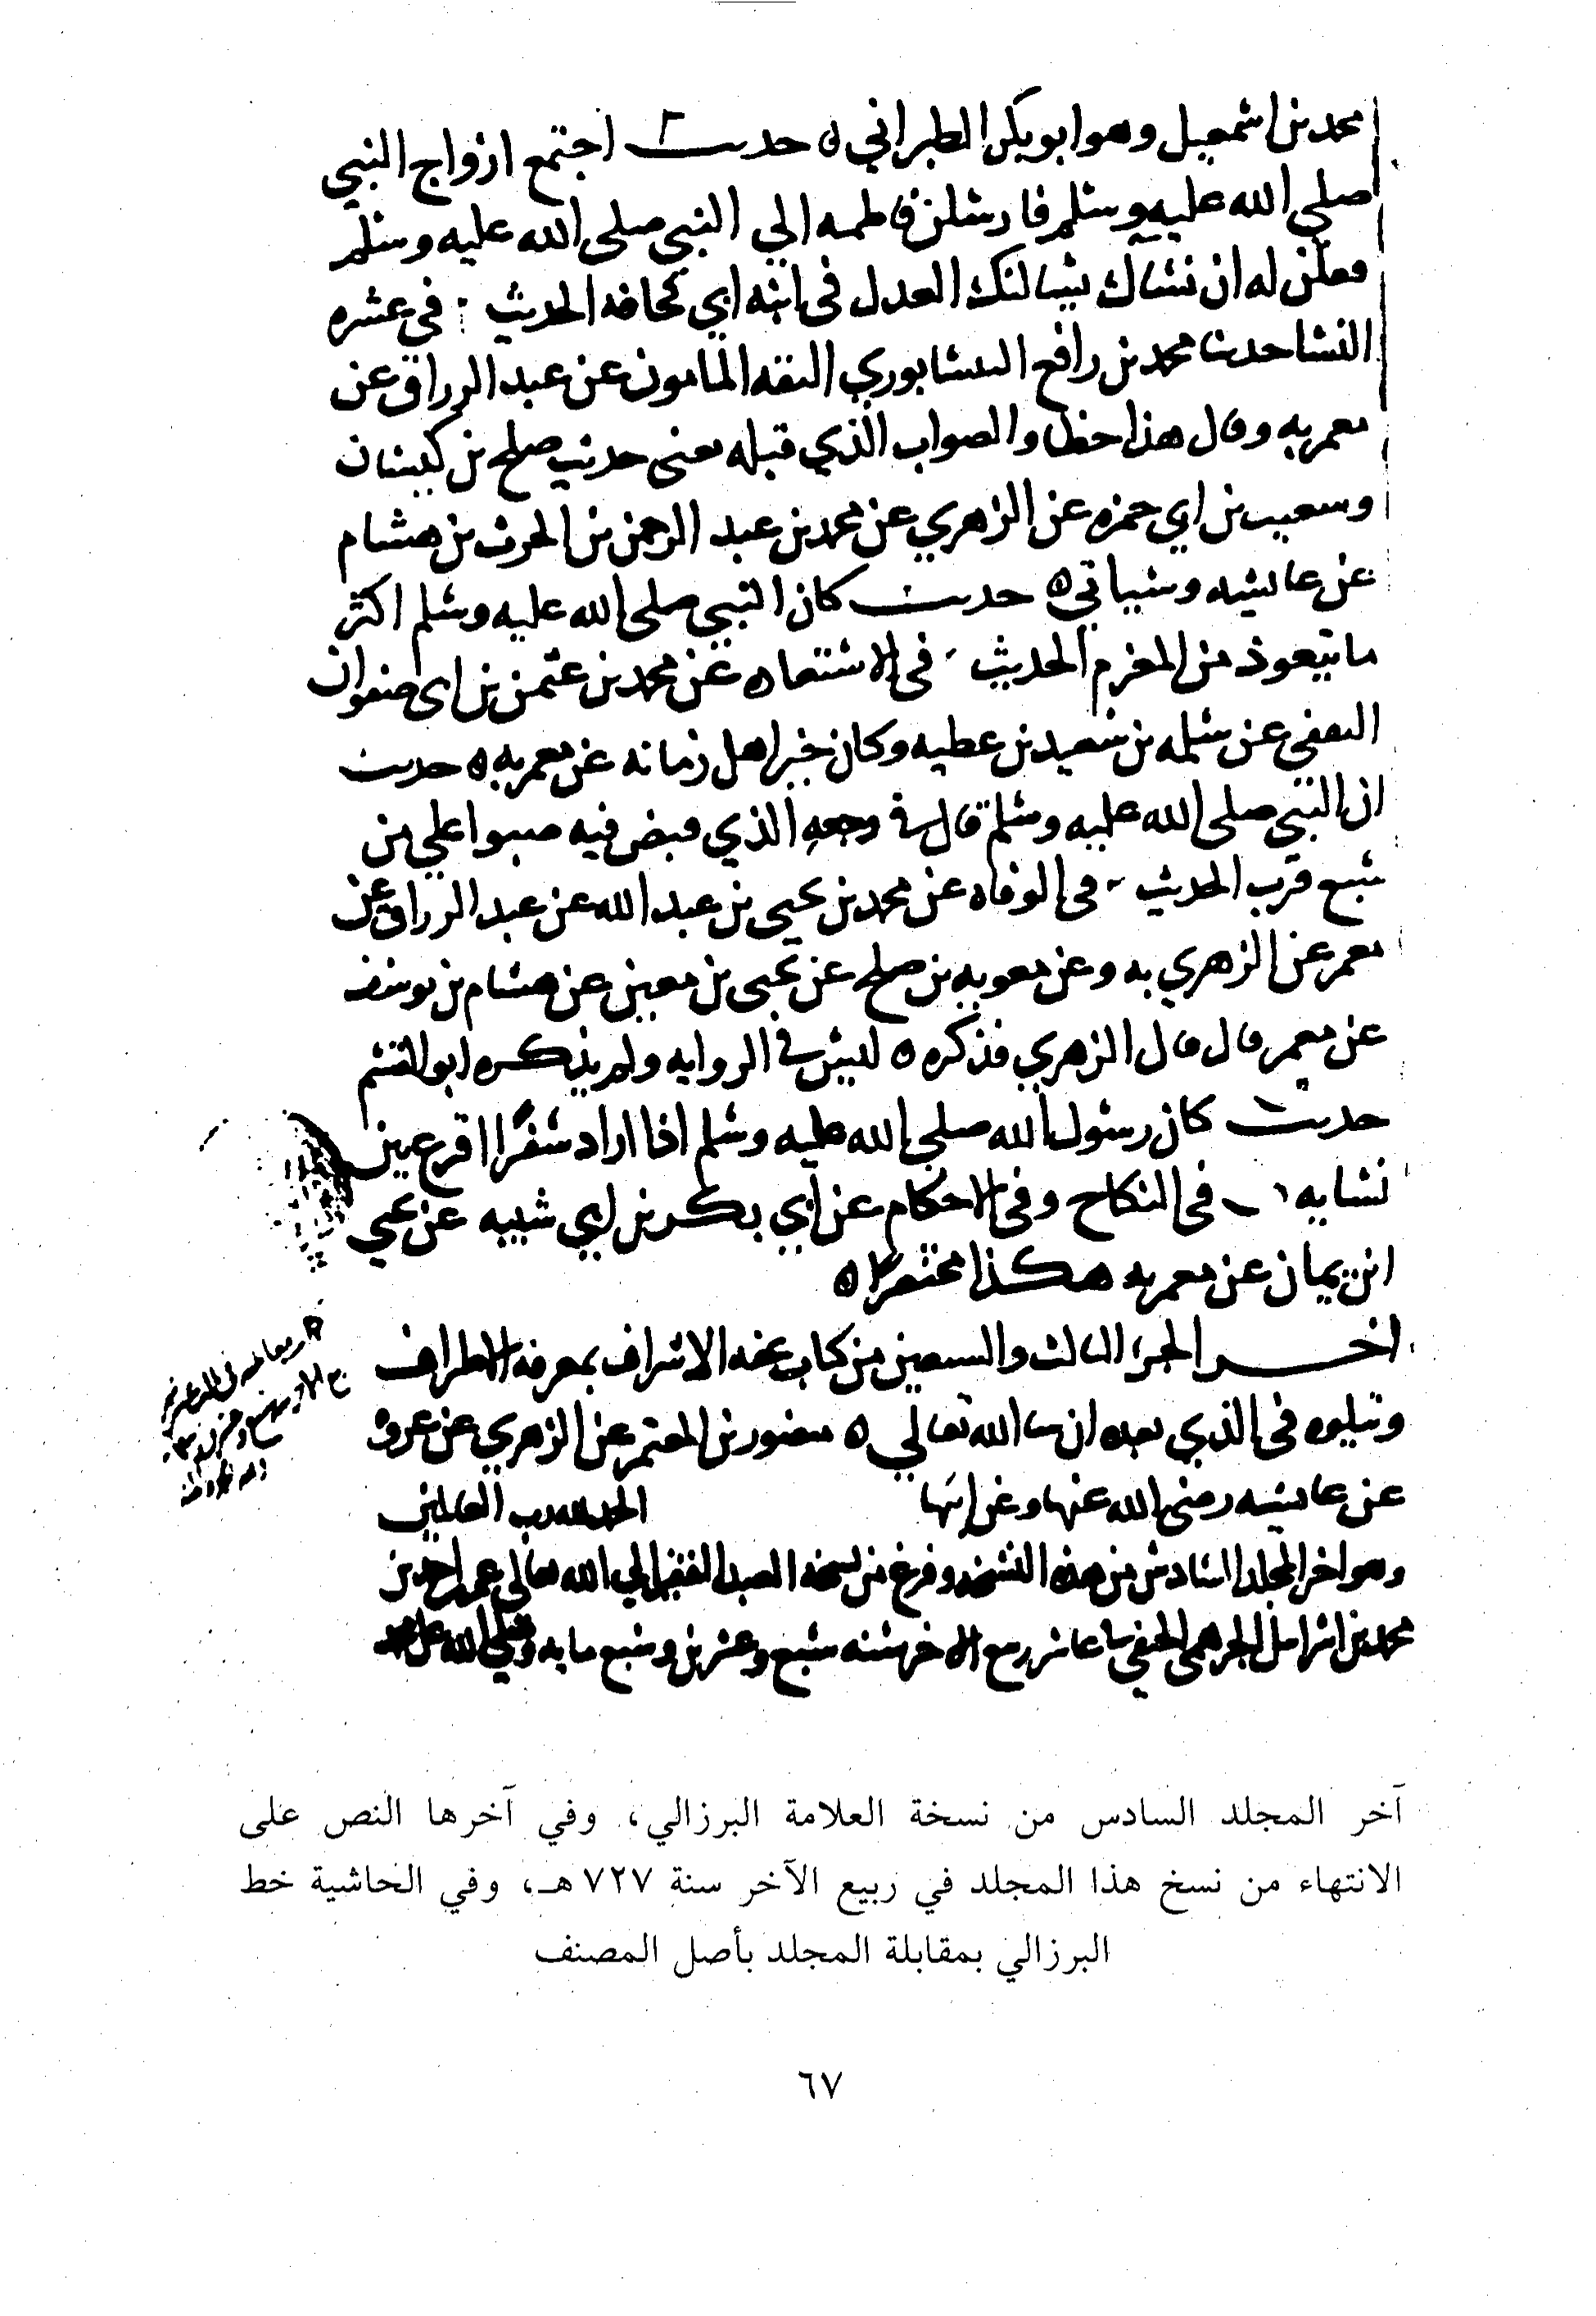 محمد بن اسمعيل وهو ابو بكر الطبراني ه حديث اجتمع ازواج النبي
صلي الله عليه وسلم فارسلن فاطمه الي النبي صلى الله عليه وسلم
فقلن له ان نساك ينشدنك العدل في ابنه ابي قحافه الحديث في عشره
النسا حدثنا محمد بن رافع النيسابوري الثقه المامون عن عبد الرزاق عن
معمر به وقال هذا خطا والصواب الذي قبله يعني حديث صلح بن كيسان
وشعيب بن ابي حمزه عن الزهري عن محمد بن عبد الرحمن بن الحرث بن هشام
عن عايشه وسياتي ه حديث كان النبي صلى الله عليه وسلم اكثر
ما يتعوذ من المغرم الحديث في الاستعاذه عن محمد بن عثمن بن ابي صفوان
الثقفي عن سلمه بن سعيد بن عطيه وكان خير اهل زمانه عن معمر به ه حديث
ان النبي صلى الله عليه وسلم قال في وجعه الذي قبض فيه صبوا علي من
سبع قرب الحديث في الوفاه عن محمد بن يحيى بن عبد الله عن عبد الرزاق عن
معمر عن الزهري به وعن معويه بن صلح عن يحيى بن معين عن هشام بن يوسف
عن معمر قال قال الزهري فذكره ه ليس في الروايه ولم يذكره ابو القسم
حديث كان رسول الله صلى الله عليه وسلم اذا اراد سفرا اقرع بين
نسايه في النكاح وفي الاحكام عن ابي بكر بن ابي شيبه عن يحيى
ابن يمان عن معمر به هكذا مختصرا ه
اخر الجزء الثالث والسبعين من كتاب تحفه الاشراف بمعرفه الاطراف
ويتلوه في الذي بعده ان شا الله تعالي ه منصور بن المعتمر عن الزهري عن عروه
عن عايشه رضي الله عنها وعن ابيها الحمد لله رب العالمين
وهو اخر المجلد السادس من هذه النسخه وفرغ من نسخه العبد الفقير الي الله تعالى عمر احمد بن
محمد بن الحنفي عاشر ربيع الاخر سنه سبع وعشرين وسبع مايه وصلى الله على محمد
آخر المجلد السادس من نسخة العلامة البرزالي، وفي آخرها النص على
الانتهاء من نسخ هذا المجلد في ربيع الآخر سنة ٧٢٧هـ، وفي الحاشية خط
البرزالي بمقابلة المجلد بأصل المصنف
٦٧